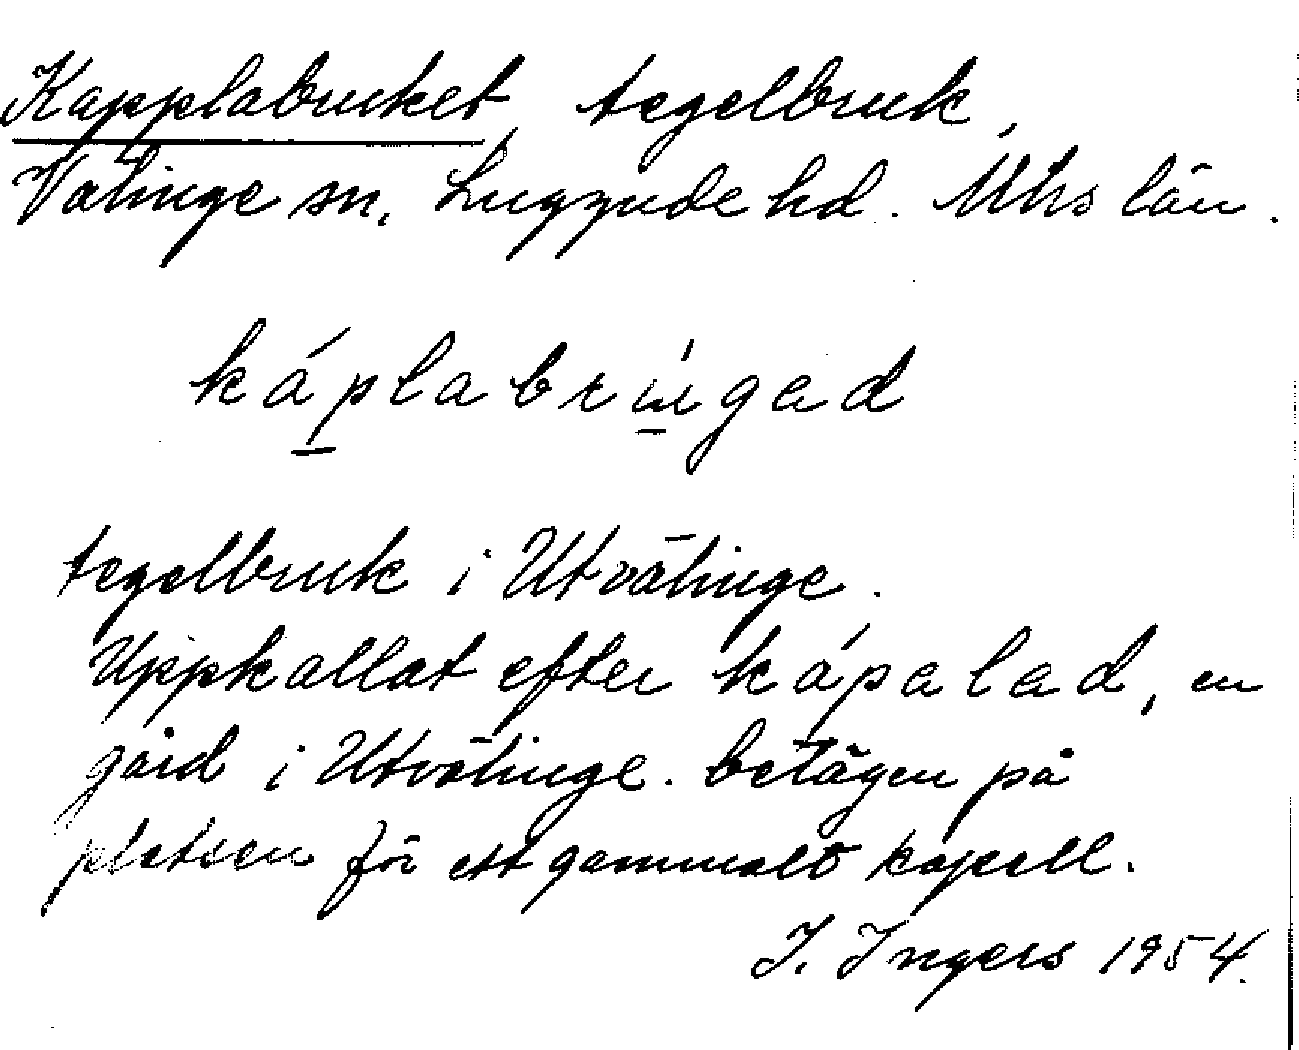 Kapplabruket, tegelbruk,
Välinge sn. Luggude hd. Mhs län.
káplabrúgad
tegelbruk i Utvälinge.
Uppkallat efter kápalad, en
gård i Utvälinge. belägen på
platsen för ett gammalt kapell.
I. Ingers 1954.